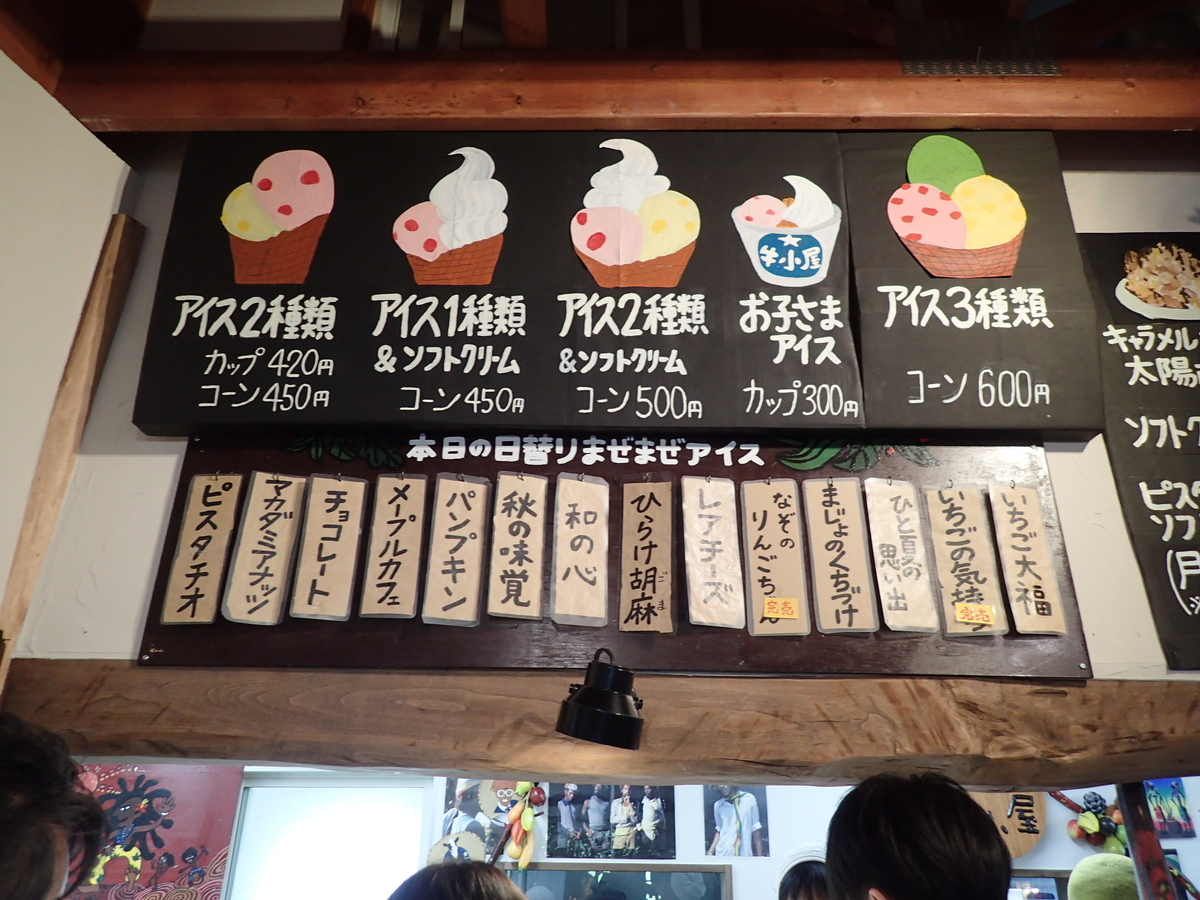 アイス2種類
カップ 420円
コーン 450円
アイス1種類
&ソフトクリーム
コーン 450円
アイス2種類
&ソフトクリーム
コーン 500円
小屋
お子さま
アイス
カップ 300円
アイス3種類
コーン 600円
キャラメル
太陽
ソフト
ピスタ
ソフ
(月
本日の日替りまぜまぜアイス
ピスタチオ
マカダミアナッツ
チョコレート
メープルカフェ
パンプキン
秋の味覚
和の心
ひらけ胡麻
ごま
レアチーズ
なぞの
りんごちゃん
完売
まじょのくちづけ
ひと夏の
思い出
いちごの気持ち
完売
いちご大福
屋